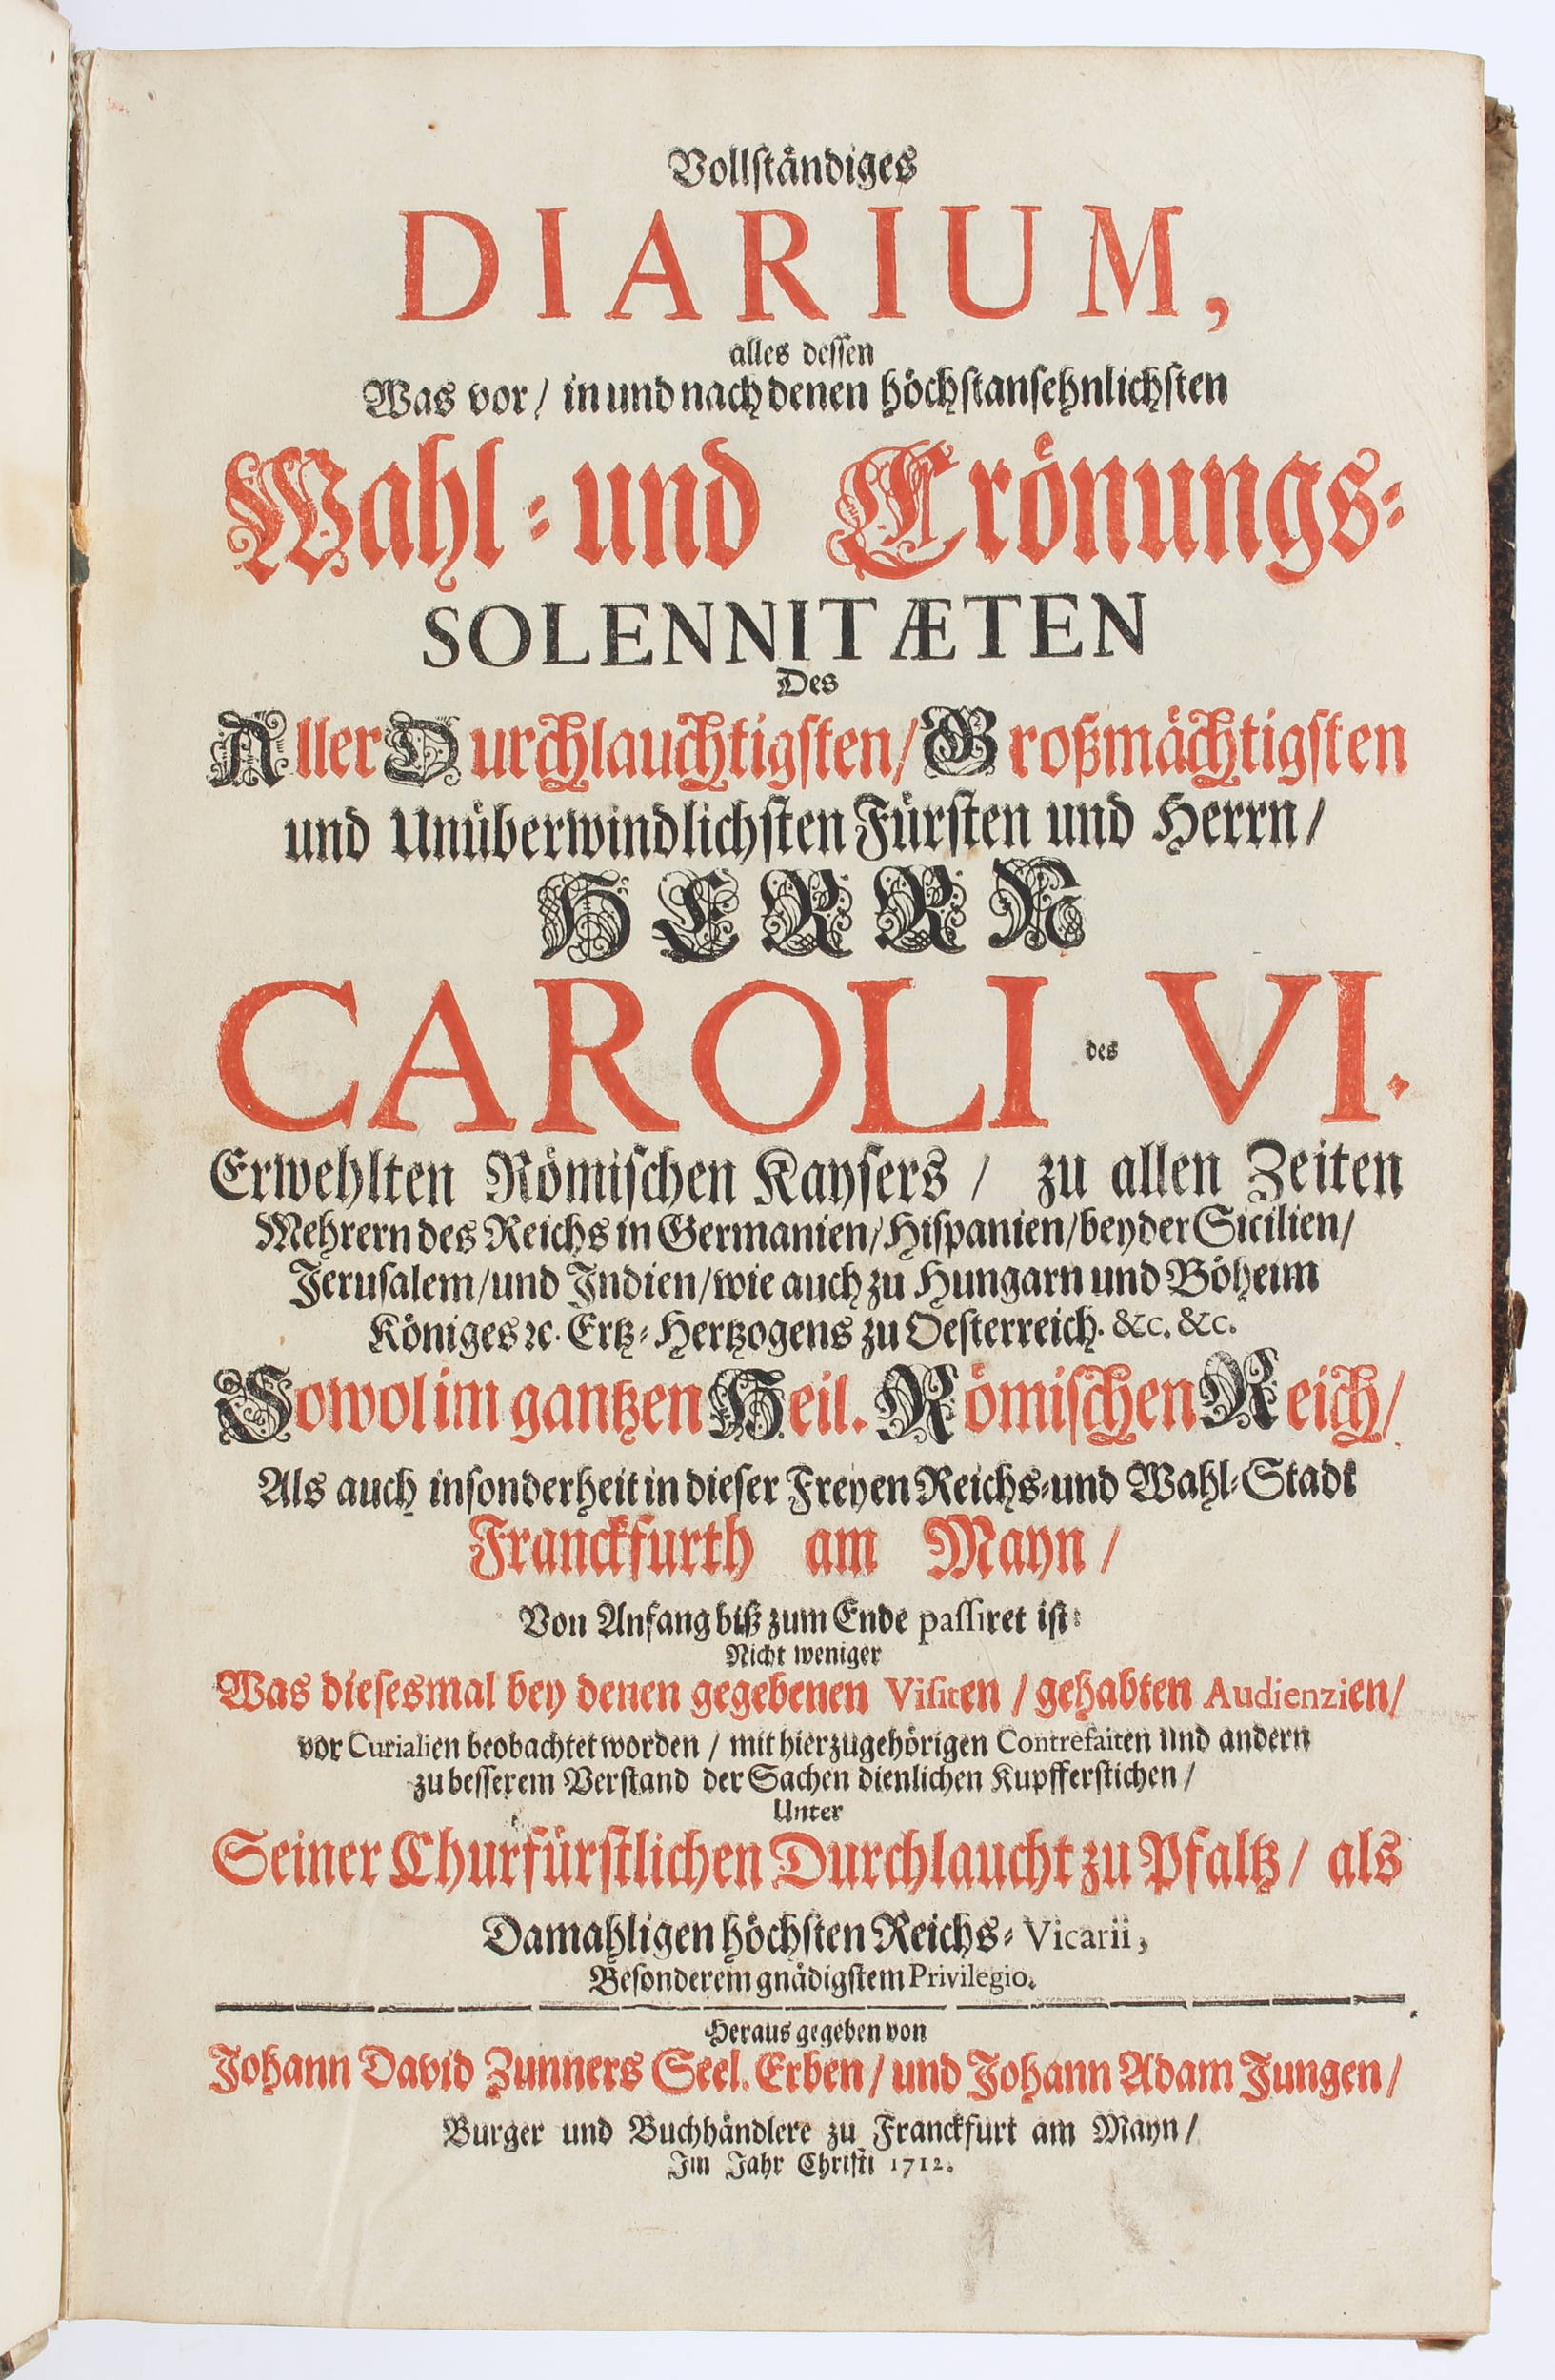 Vollständiges
DIARIUM,
alles dessen
Was vor/ in und nach denen höchstansehnlichsten
Wahl- und Crönungs-
SOLENNITÆTEN
Des
AllerDurchlauchtigsten/ Großmächtigsten
und Unüberwindlichsten Fürsten und Herrn/
HERRN
CAROLI des VI.
Erwehlten Römischen Kaysers / zu allen Zeiten
Mehrern des Reichs in Germanien/ Hispanien/ beyder Sicilien/
Jerusalem/ und Indien/ wie auch zu Hungarn und Böheim
Königes ꝛc. Ertz-Hertzogens zu Oesterreich. &c. &c.
Sowol im gantzen Heil. Römischen Reich/
Als auch insonderheit in dieser Freyen Reichs-und Wahl-Stadt
Franckfurth am Mayn /
Von Anfang biß zum Ende passiret ist:
Nicht weniger
Was diesesmal bey denen gegebenen Visiten / gehabten Audienzien/
vor Curialien beobachtet worden / mit hierzugehörigen Contrefaiten und andern
zu besserem Verstand der Sachen dienlichen Kupfferstichen /
Unter
Seiner Churfürstlichen Durchlaucht zu Pfaltz / als
Damahligen höchsten Reichs-Vicarii,
Besonderem gnädigstem Privilegio.
Heraus gegeben von
Johann David Zunners Seel. Erben / und Johann Adam Jungen /
Burger und Buchhändlere zu Franckfurt am Mayn /
Im Jahr Christi 1712.